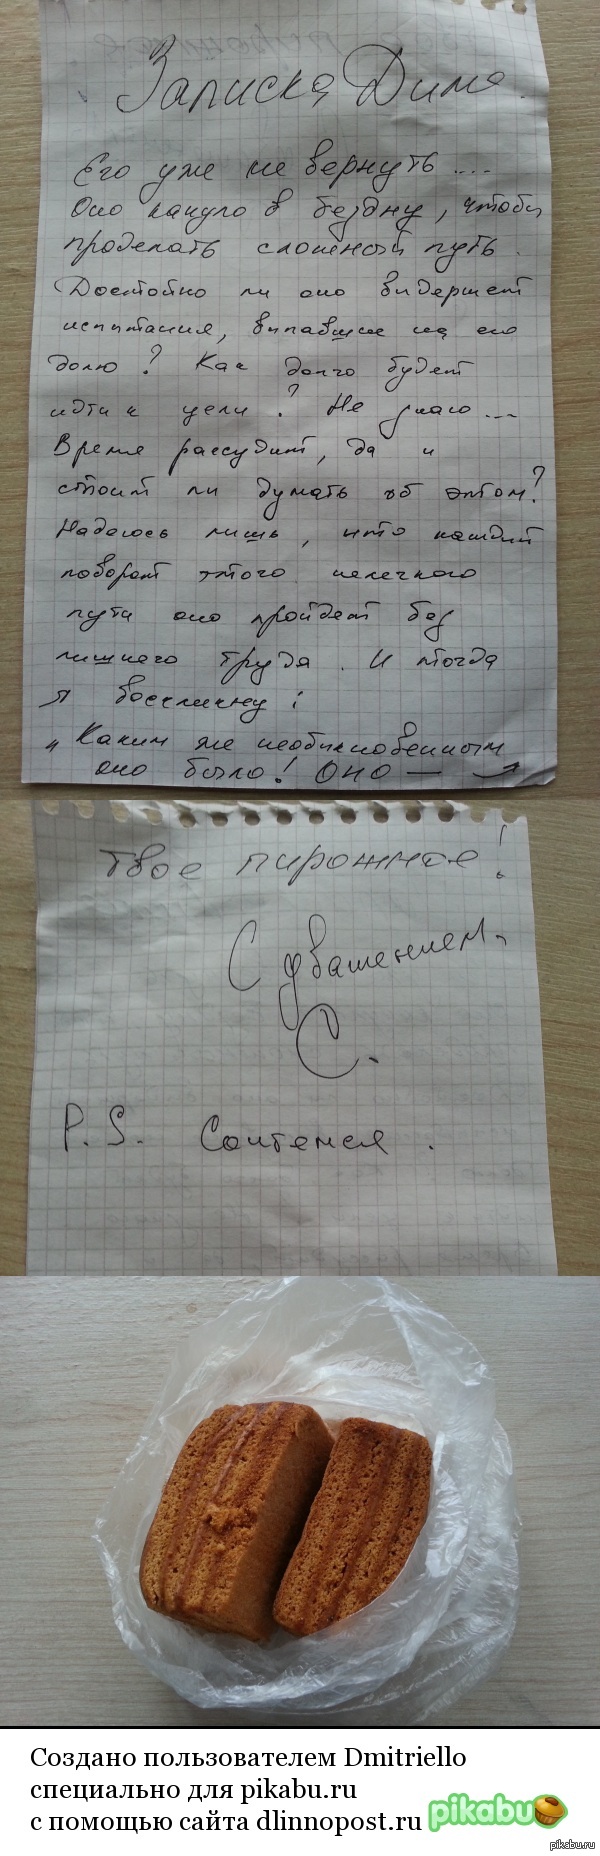 Записка Диме.
Его уже не вернуть....
Оно кануло в бездну, чтобы
проделать сложный путь.
Достойно ли оно выдержит
испытания, выпавшие на его
долю? Как долго будет
идти к цели? Не знаю...
Время рассудит, да и
стоит ли думать об этом?
Надеюсь лишь, что каждый
поворот этого нелегкого
пути оно пройдет без
лишнего труда. И тогда
я воскликну:
"Каким же необыкновенным
оно было! Оно —
твое пирожное!
С уважением,
С.
P.S. Сочтемся.
Создано пользователем Dmitriello
специально для pikabu.ru
с помощью сайта dlinnopost.ru pikabu
pikabu.ru